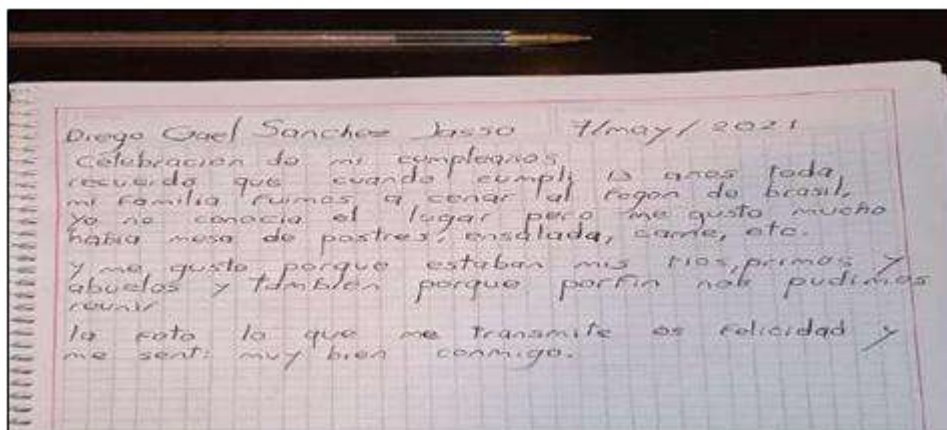 Diego Gael Sanchez Jasso 7/may/2021
Celebracion de mi cumpleaños
recuerdo que cuando cumpli 13 años toda,
mi familia fuimos a cenar al fogon do brasil,
yo no conocia el lugar pero me gusto mucho
habia mesa de postres, ensalada, carne, etc.
y me gusto porque estaban mis tios, primos y
abuelos y tambien porque porfin nos pudimos
reunir
la foto lo que me transmite es felicidad y
me senti muy bien conmigo.